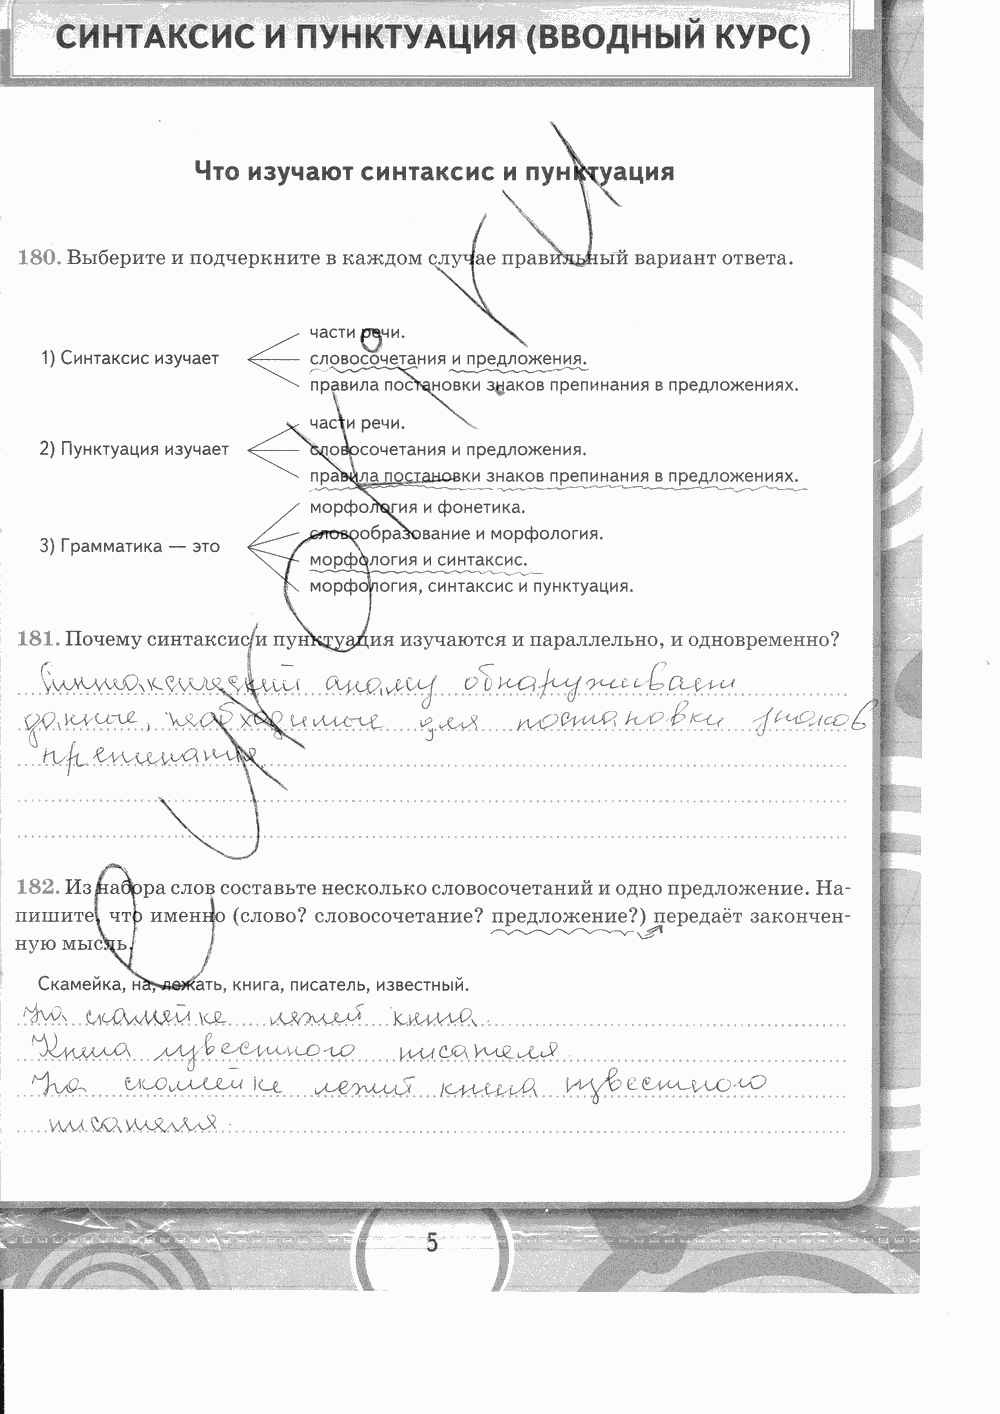 СИНТАКСИС И ПУНКТУАЦИЯ (ВВОДНЫЙ КУРС)
Что изучают синтаксис и пунктуация
180. Выберите и подчеркните в каждом случае правильный вариант ответа.
1) Синтаксис изучает
части речи.
словосочетания и предложения.
правила постановки знаков препинания в предложениях.
2) Пунктуация изучает
части речи.
словосочетания и предложения.
правила постановки знаков препинания в предложениях.
3) Грамматика — это
морфология и фонетика.
словообразование и морфология.
морфология и синтаксис.
морфология, синтаксис и пунктуация.
181. Почему синтаксис и пунктуация изучаются и параллельно, и одновременно?
Синтаксический анализ обнаруживает
данные, необходимые для постановки знаков
препинания.
182. Из набора слов составьте несколько словосочетаний и одно предложение. На-
пишите, что именно (слово? словосочетание? предложение?) передаёт закончен-
ную мысль.
Скамейка, на, лежать, книга, писатель, известный.
На скамейке лежит книга.
Книга известного писателя.
На скамейке лежит книга известного
писателя.
5